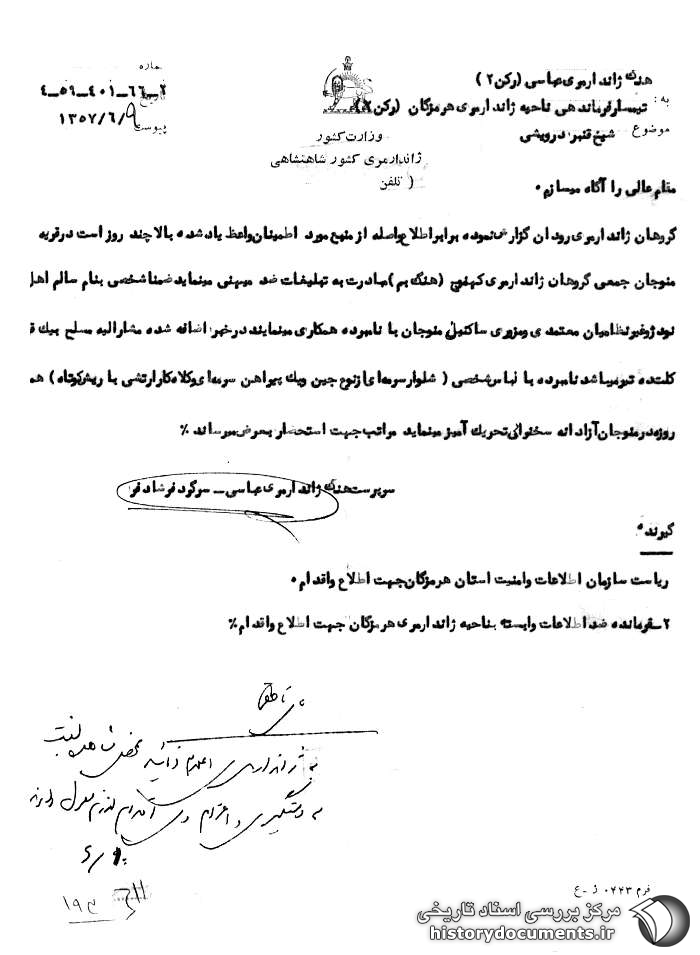 هنگ ژاندارمری عباسی (رکن ۲)
به: تیمسار فرماندهی ناحیه ژاندارمری هرمزگان (رکن ۲)
موضوع شیخ قنبر درویشی
شماره ۲_۶۶_۴۰۱_۵۹_۴
تاریخ ۱۳۵۷/۶/۹
پیوست
وزارت کشور
ژاندارمری کشور شاهنشاهی
( تلفن
مقام عالی را آگاه میسازم ۰
گروهان ژاندارمری رودان گزارش نموده برابر اطلاع واصله از منبع مورد اطمینان واعظ یاد شده بالا چند روز است در قریه
منوجان جمعی گروهان ژاندارمری کهنوج (هنگ بم) مبادرت به تبلیغات ضد میهنی مینماید ضمنا شخصی بنام سالم اهل
نودژ و غیرنظامیان معتمدی و میری ساکنین منوجان با نامبرده همکاری مینمایند در خبر اضافه شده مشارالیه مسلح بیک ق
کلت ده تیر میباشد نامبرده با لباس شخصی ( شلوار سرمه ای از نوع جین و یک پیراهن سرمه ای و کلاه کار ارتشی با ریش کوتاه ) هم
روزه در منوجان آزادانه سخنرانی تحریک آمیز مینماید مراتب جهت استحضار بعرض میرساند ٪
سرپرست هنگ ژاندارمری عباسی _ سرگرد فرشادفر
گیرنده
ریاست سازمان اطلاعات و امنیت استان هرمزگان جهت اطلاع و اقدام ۰
۲_ فرمانده ضد اطلاعات وابسته بناحیه ژاندارمری هرمزگان جهت اطلاع و اقدام ٪
به ژاندارمری اعلام دارید
به دستگیری و اعزام وی اقدام لازم معمول دارند
فرم ۰۴۴۳ ژ _ع
مرکز بررسی اسناد تاریخی
historydocuments.ir